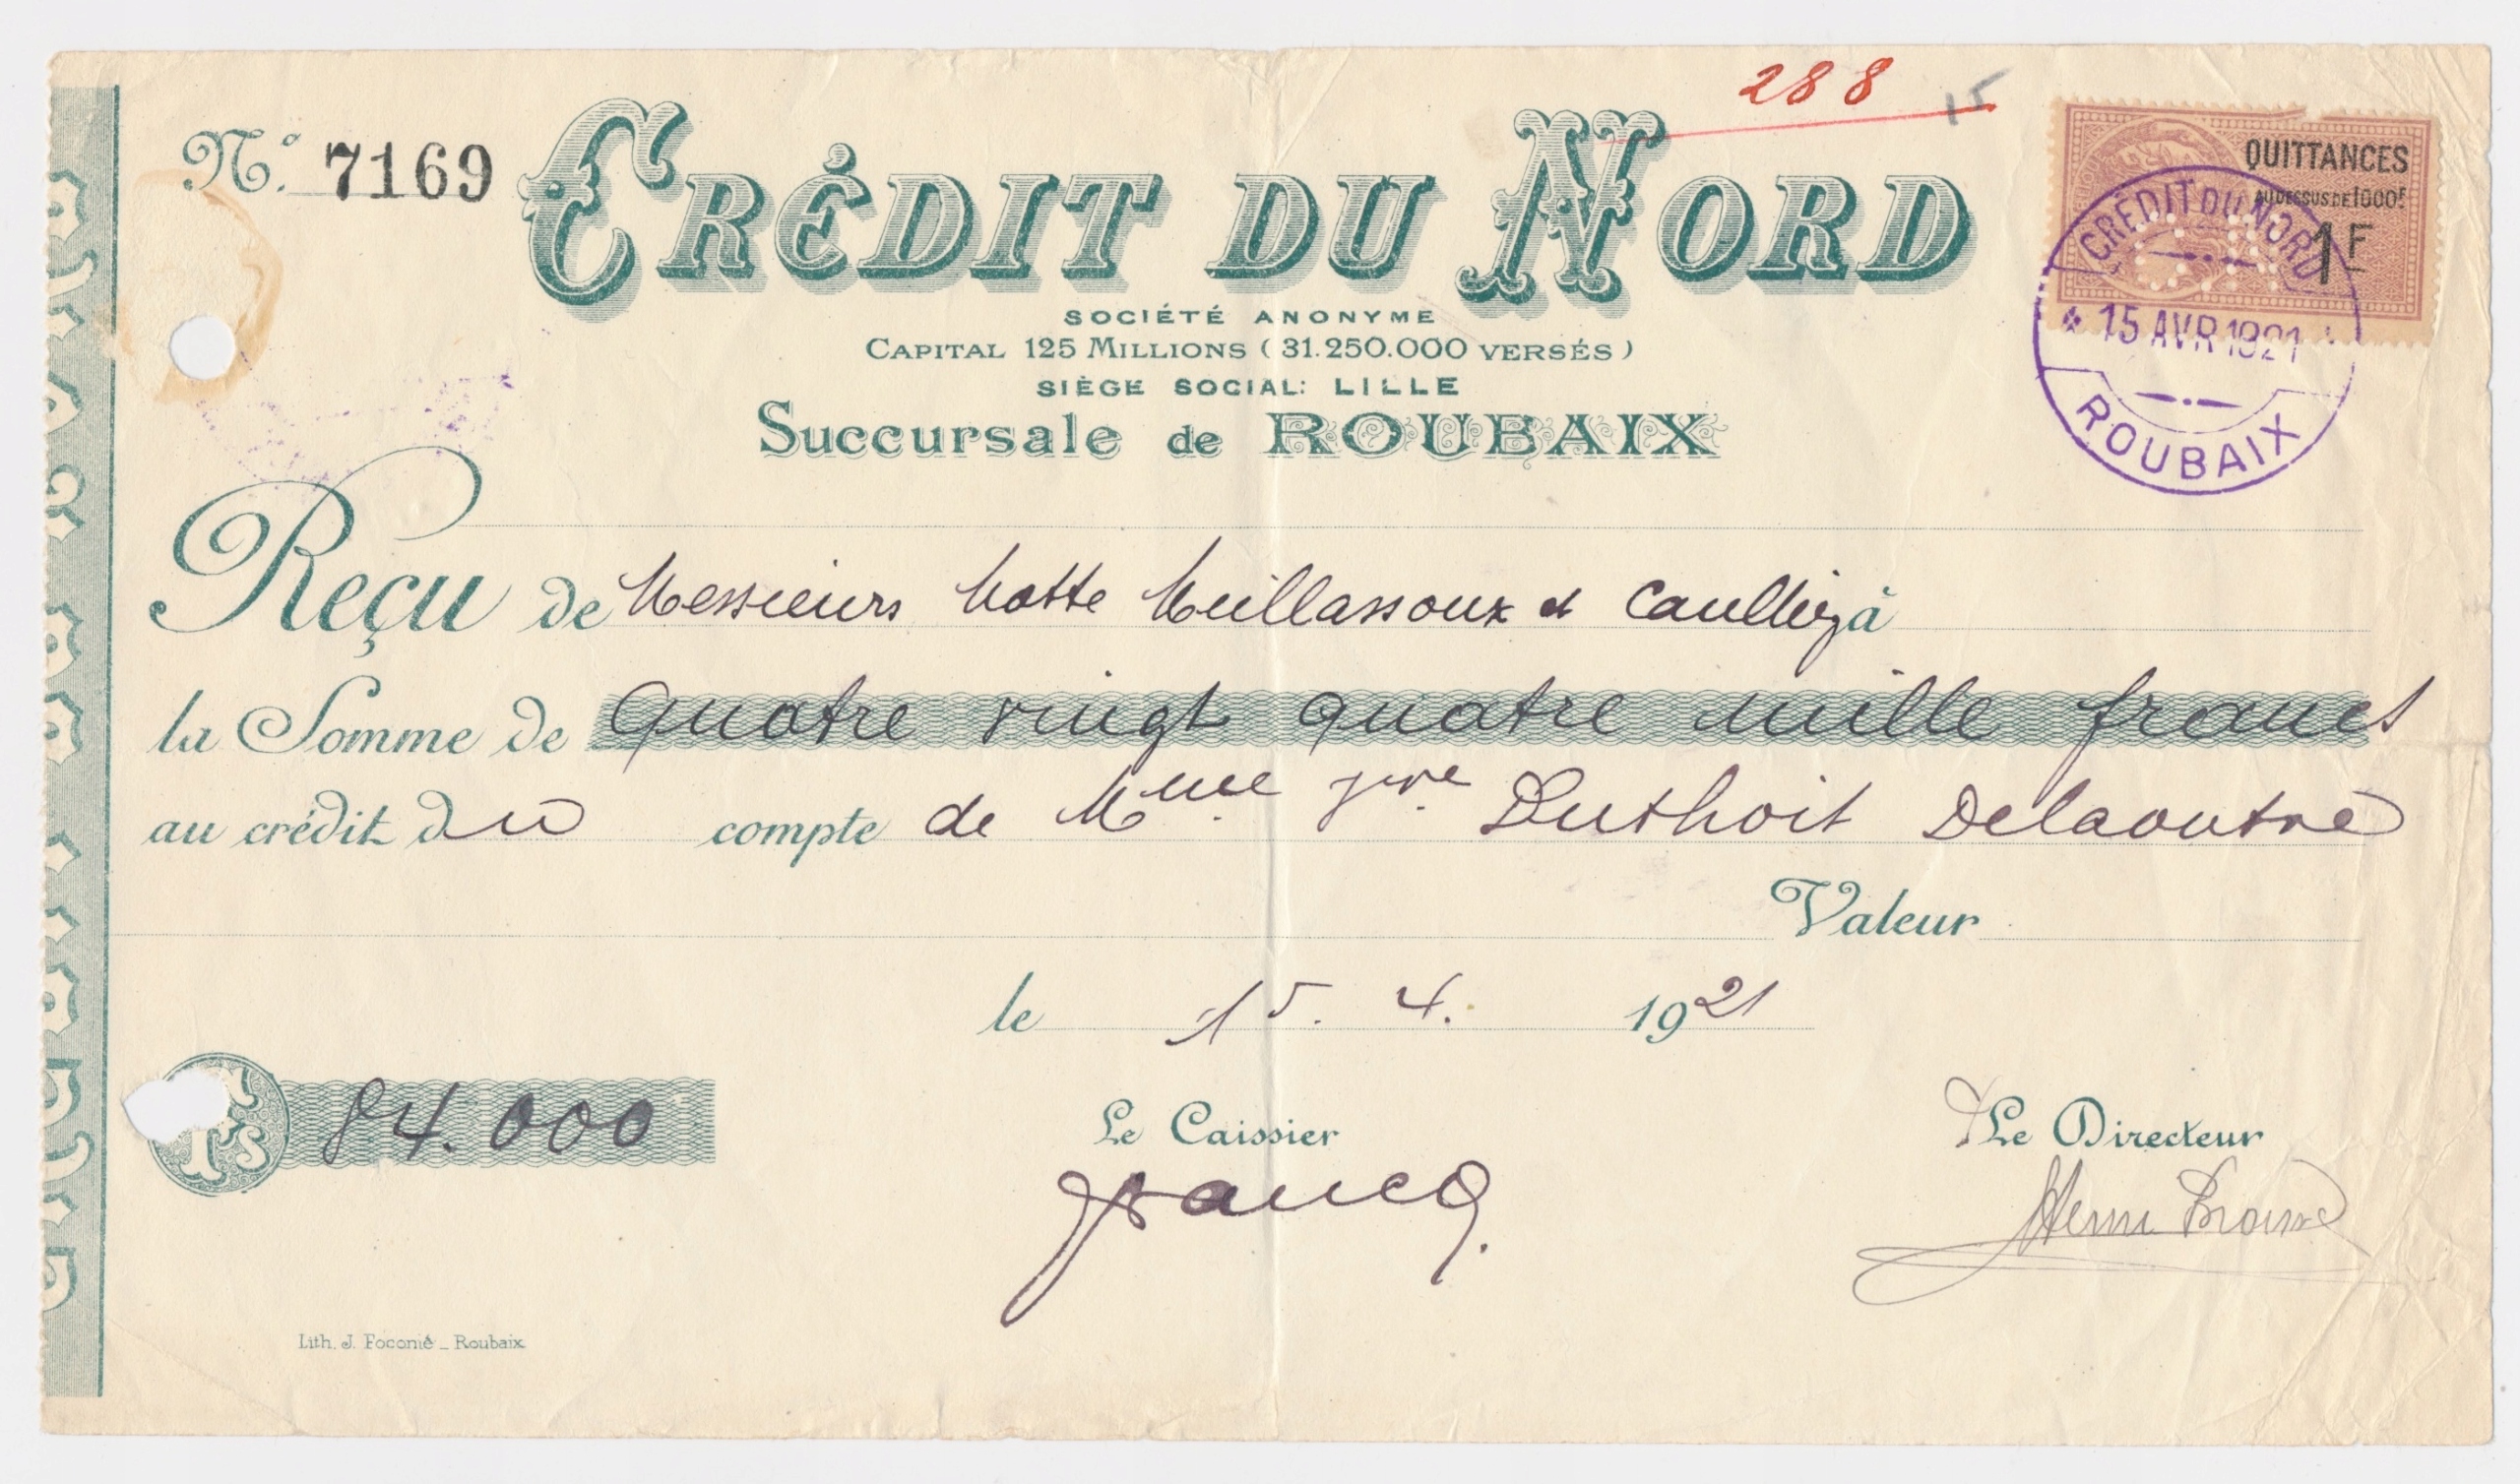 288 15
N.º 7169
CRÉDIT DU NORD
QUITTANCES
AU DESSUS DE 1000F
1F
CRÉDIT DU NORD
15 AVR 1921
ROUBAIX
SOCIÉTÉ ANONYME
CAPITAL 125 MILLIONS (31.250.000 VERSÉS)
SIÈGE SOCIAL: LILLE
Succursale de ROUBAIX
Reçu de Messieurs Motte Meillassoux et Caulliez à
la Somme de quatre vingt quatre mille francs
au crédit du compte de Mme Jve Duthoit Delaoutre
Valeur
le 15. 4. 1921
Fs 84.000
Le Caissier
Le Directeur
Francq.
Henri
Lith. J. Foconié _ Roubaix